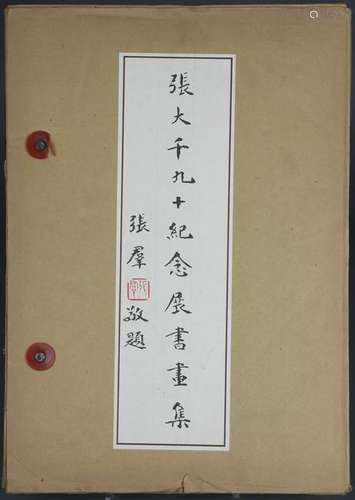 張大千九十紀念展書畫集
張羣
敬題